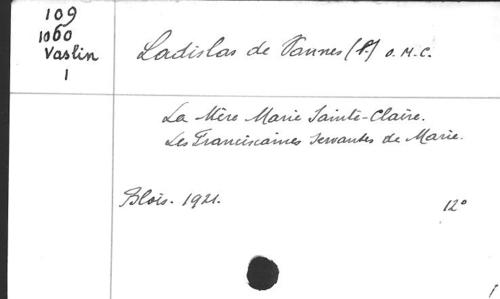 109
1060
Vaslin
1
Ladislas de Vannes (P.) O.M.C.
La Mère Marie Sainte-Claire.
Les Franciscaines Servantes de Marie.
Blois. 1921.
12°